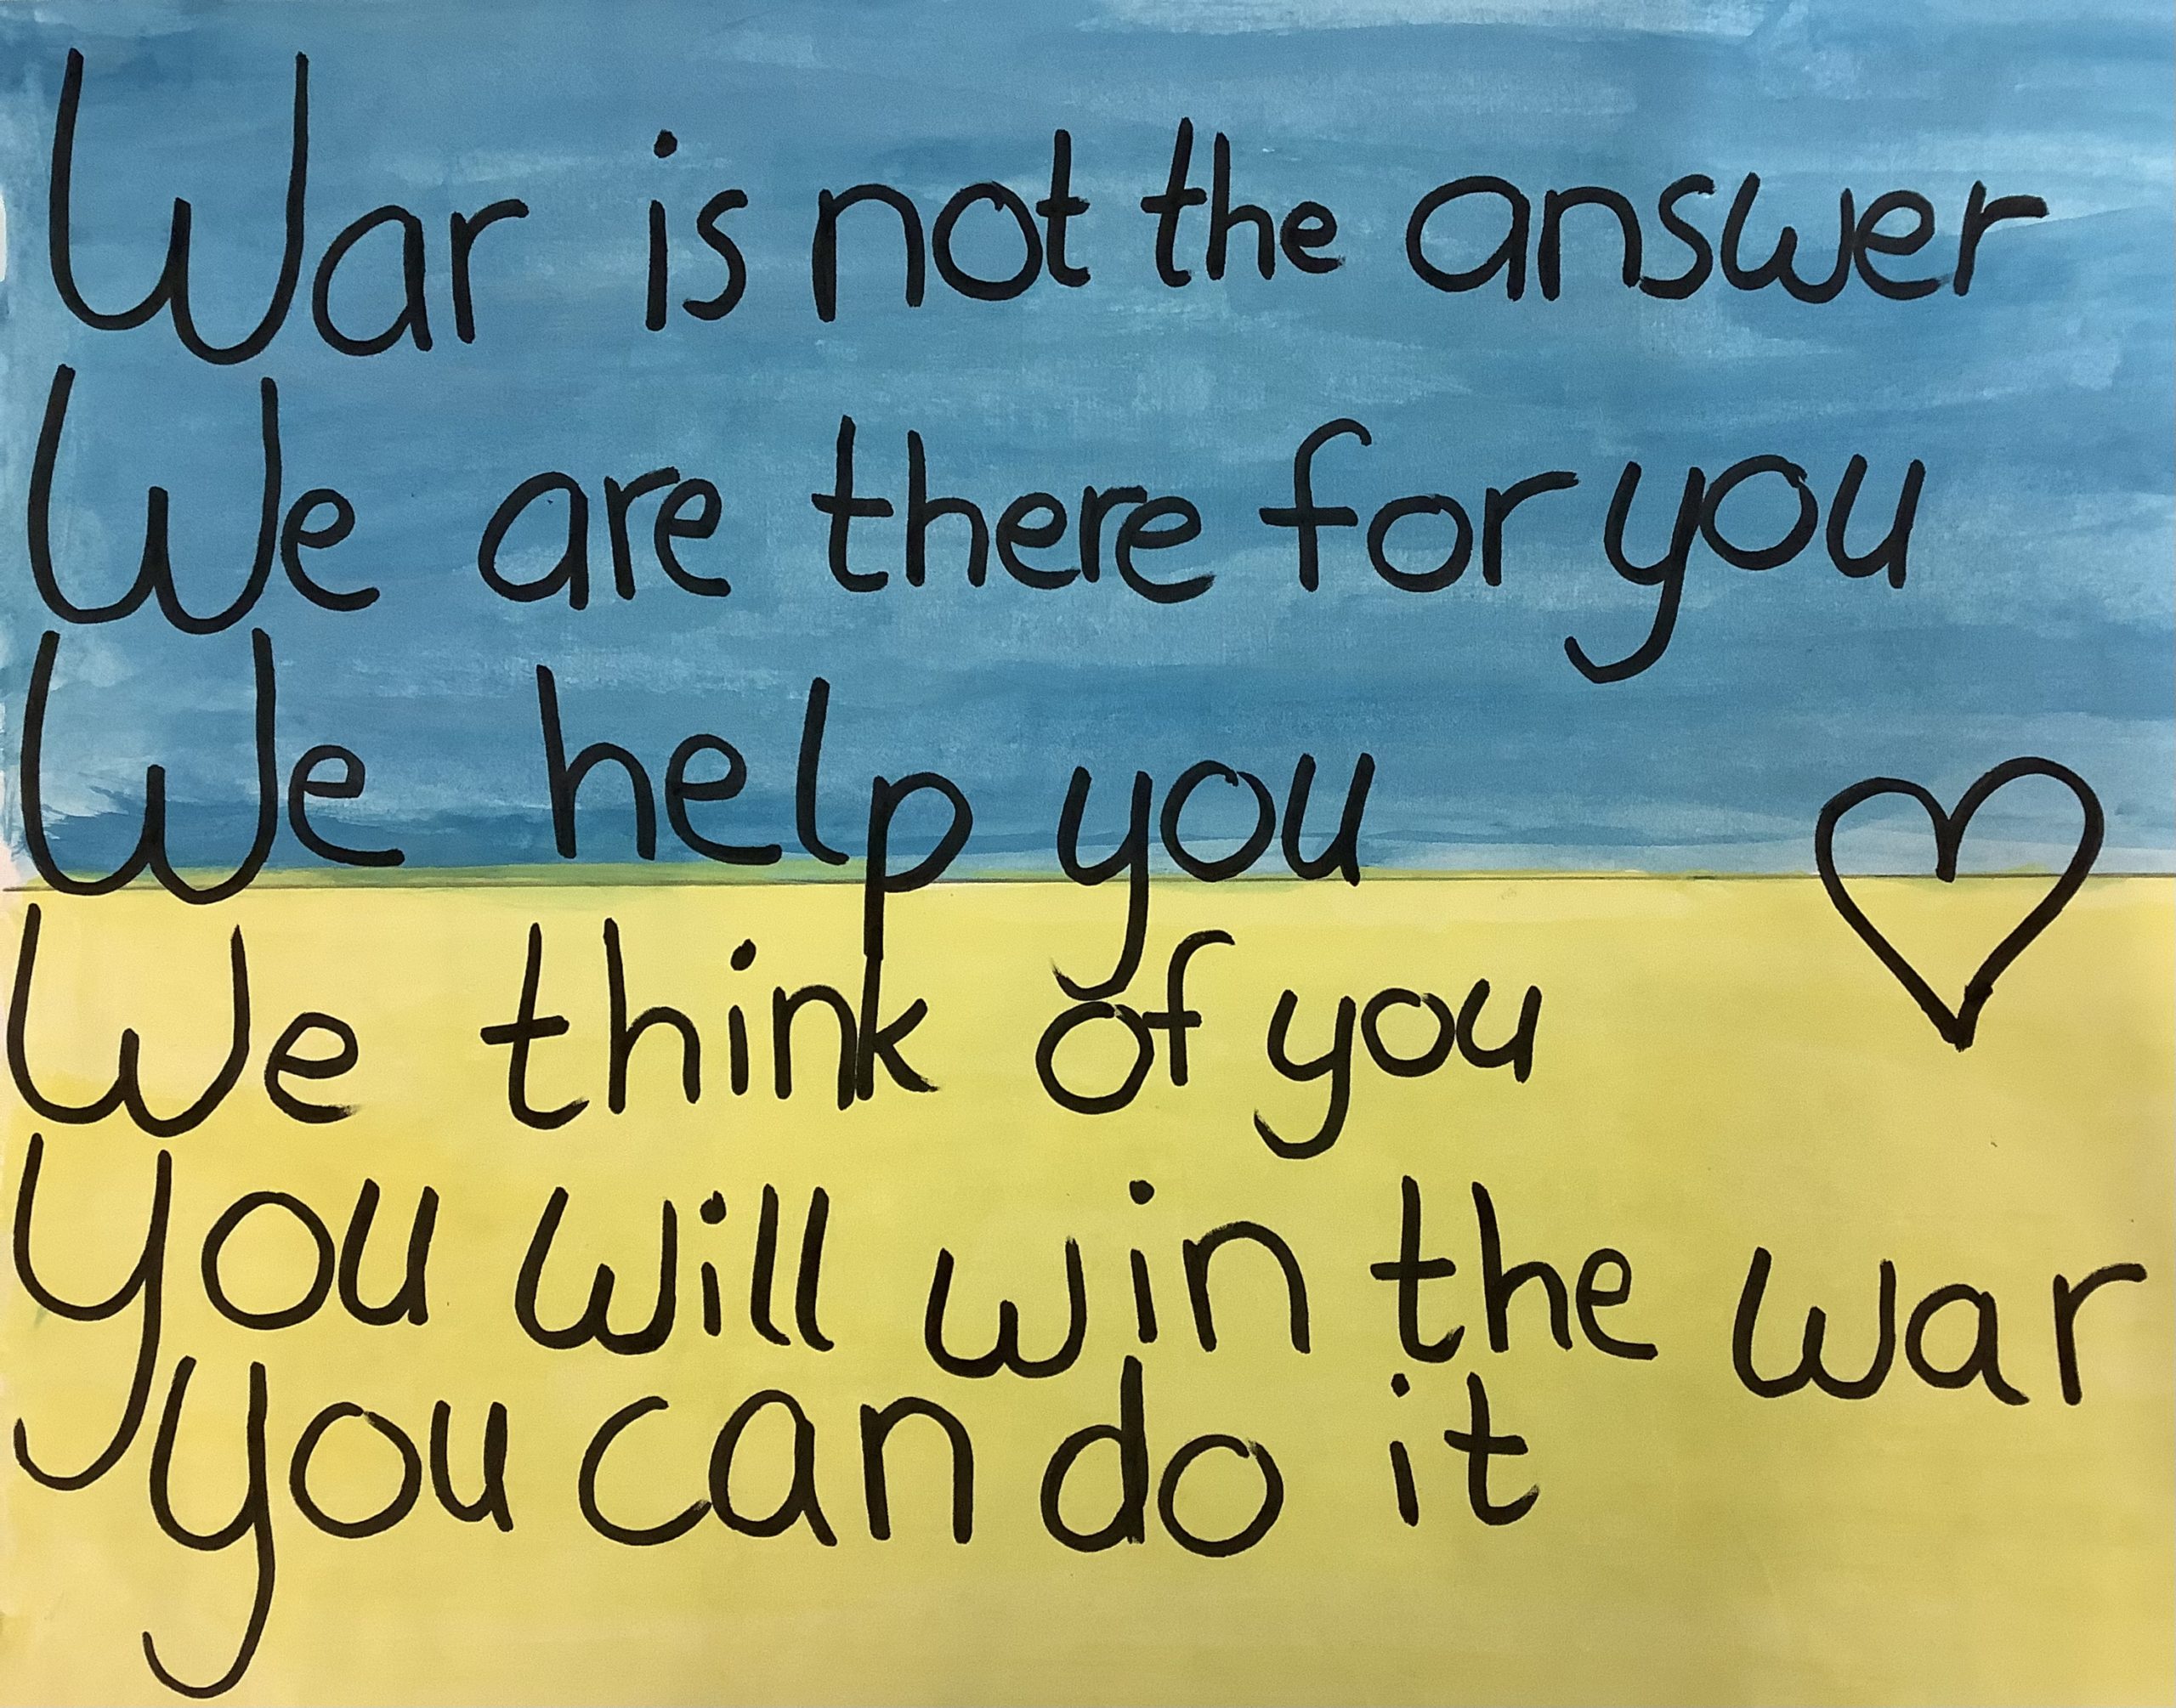 War is not the answer
We are there for you
We help you
We think of you
You will win the war
You can do it